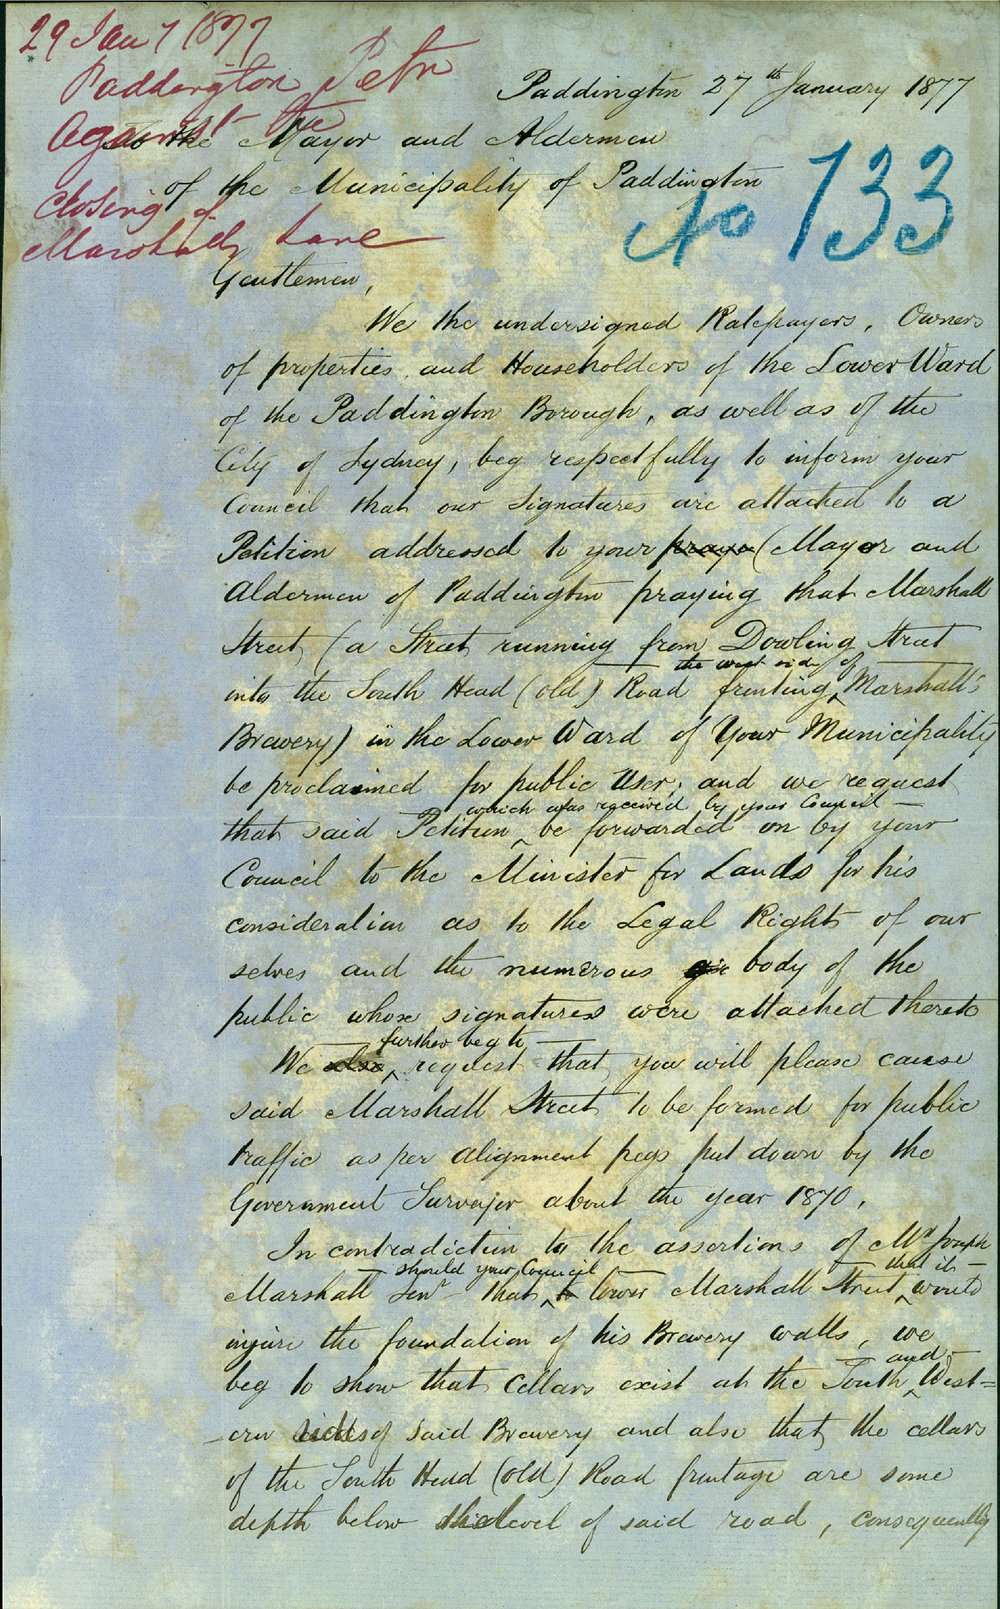 29 Jany 1877
Paddington Petn
Against the
Closing of
Marshalls Lane
No 133
Paddington 27th January 1877
To the Mayor and Aldermen
of the Municipality of Paddington
Gentlemen,
We the undersigned Ratepayers, Owners
of properties, and Householders of the Lower Ward
of the Paddington Borough, as well as of the
City of Sydney, beg respectfully to inform your
Council that our Signatures are attached to a
Petition addressed to your praye (Mayor and
Aldermen of Paddington praying that Marshall
Street, (a Street running from Dowling Street
the west side of
into the South Head (old) Road fronting Marshall's
Brewery) in the Lower Ward of Your Municipality
be proclaimed for public User; and we request
which was received by your Council
that said Petition be forwarded on by your
Council to the Minister for Lands for his
consideration as to the Legal Rights of our
selves and the numerous body of the
public whose signatures were attached thereto
further beg to
We also request that you will please cause
said Marshall Street to be formed for public
traffic as per alignment pegs put down by the
Government Surveyor about the year 1870.
In contradiction to the assertions of Mr Joseph
should your Council that it
Marshall Senr that to lower Marshall Street would
injure the foundation of his Brewery walls, we
and
beg to show that Cellars exist at the South West=
-ern sides of said Brewery and also that the cellars
of the South Head (old) Road frontage are some
depth below the level of said road, consequently